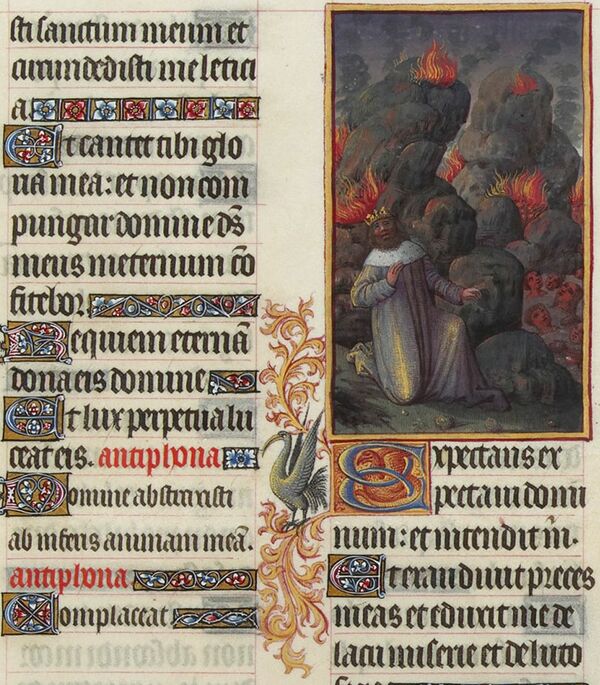 sti sanctum meum et
circundedisti me letici
a.
Et cantet tibi glo
ria mea: et non com
pungar domine ds
meus ineternum co
fitebor.
Requiem eterna
dona eis domine
Et lux perpetua lu
ceat eis. antiphona
Domine abstraxisti
ab inferis animam mea.
antiphona
Complaceat
Expectans ex
pectaui domi
num: et intendit m.
Et exaudiuit preces
meas et eduxit me de
lacu miserie et de luto